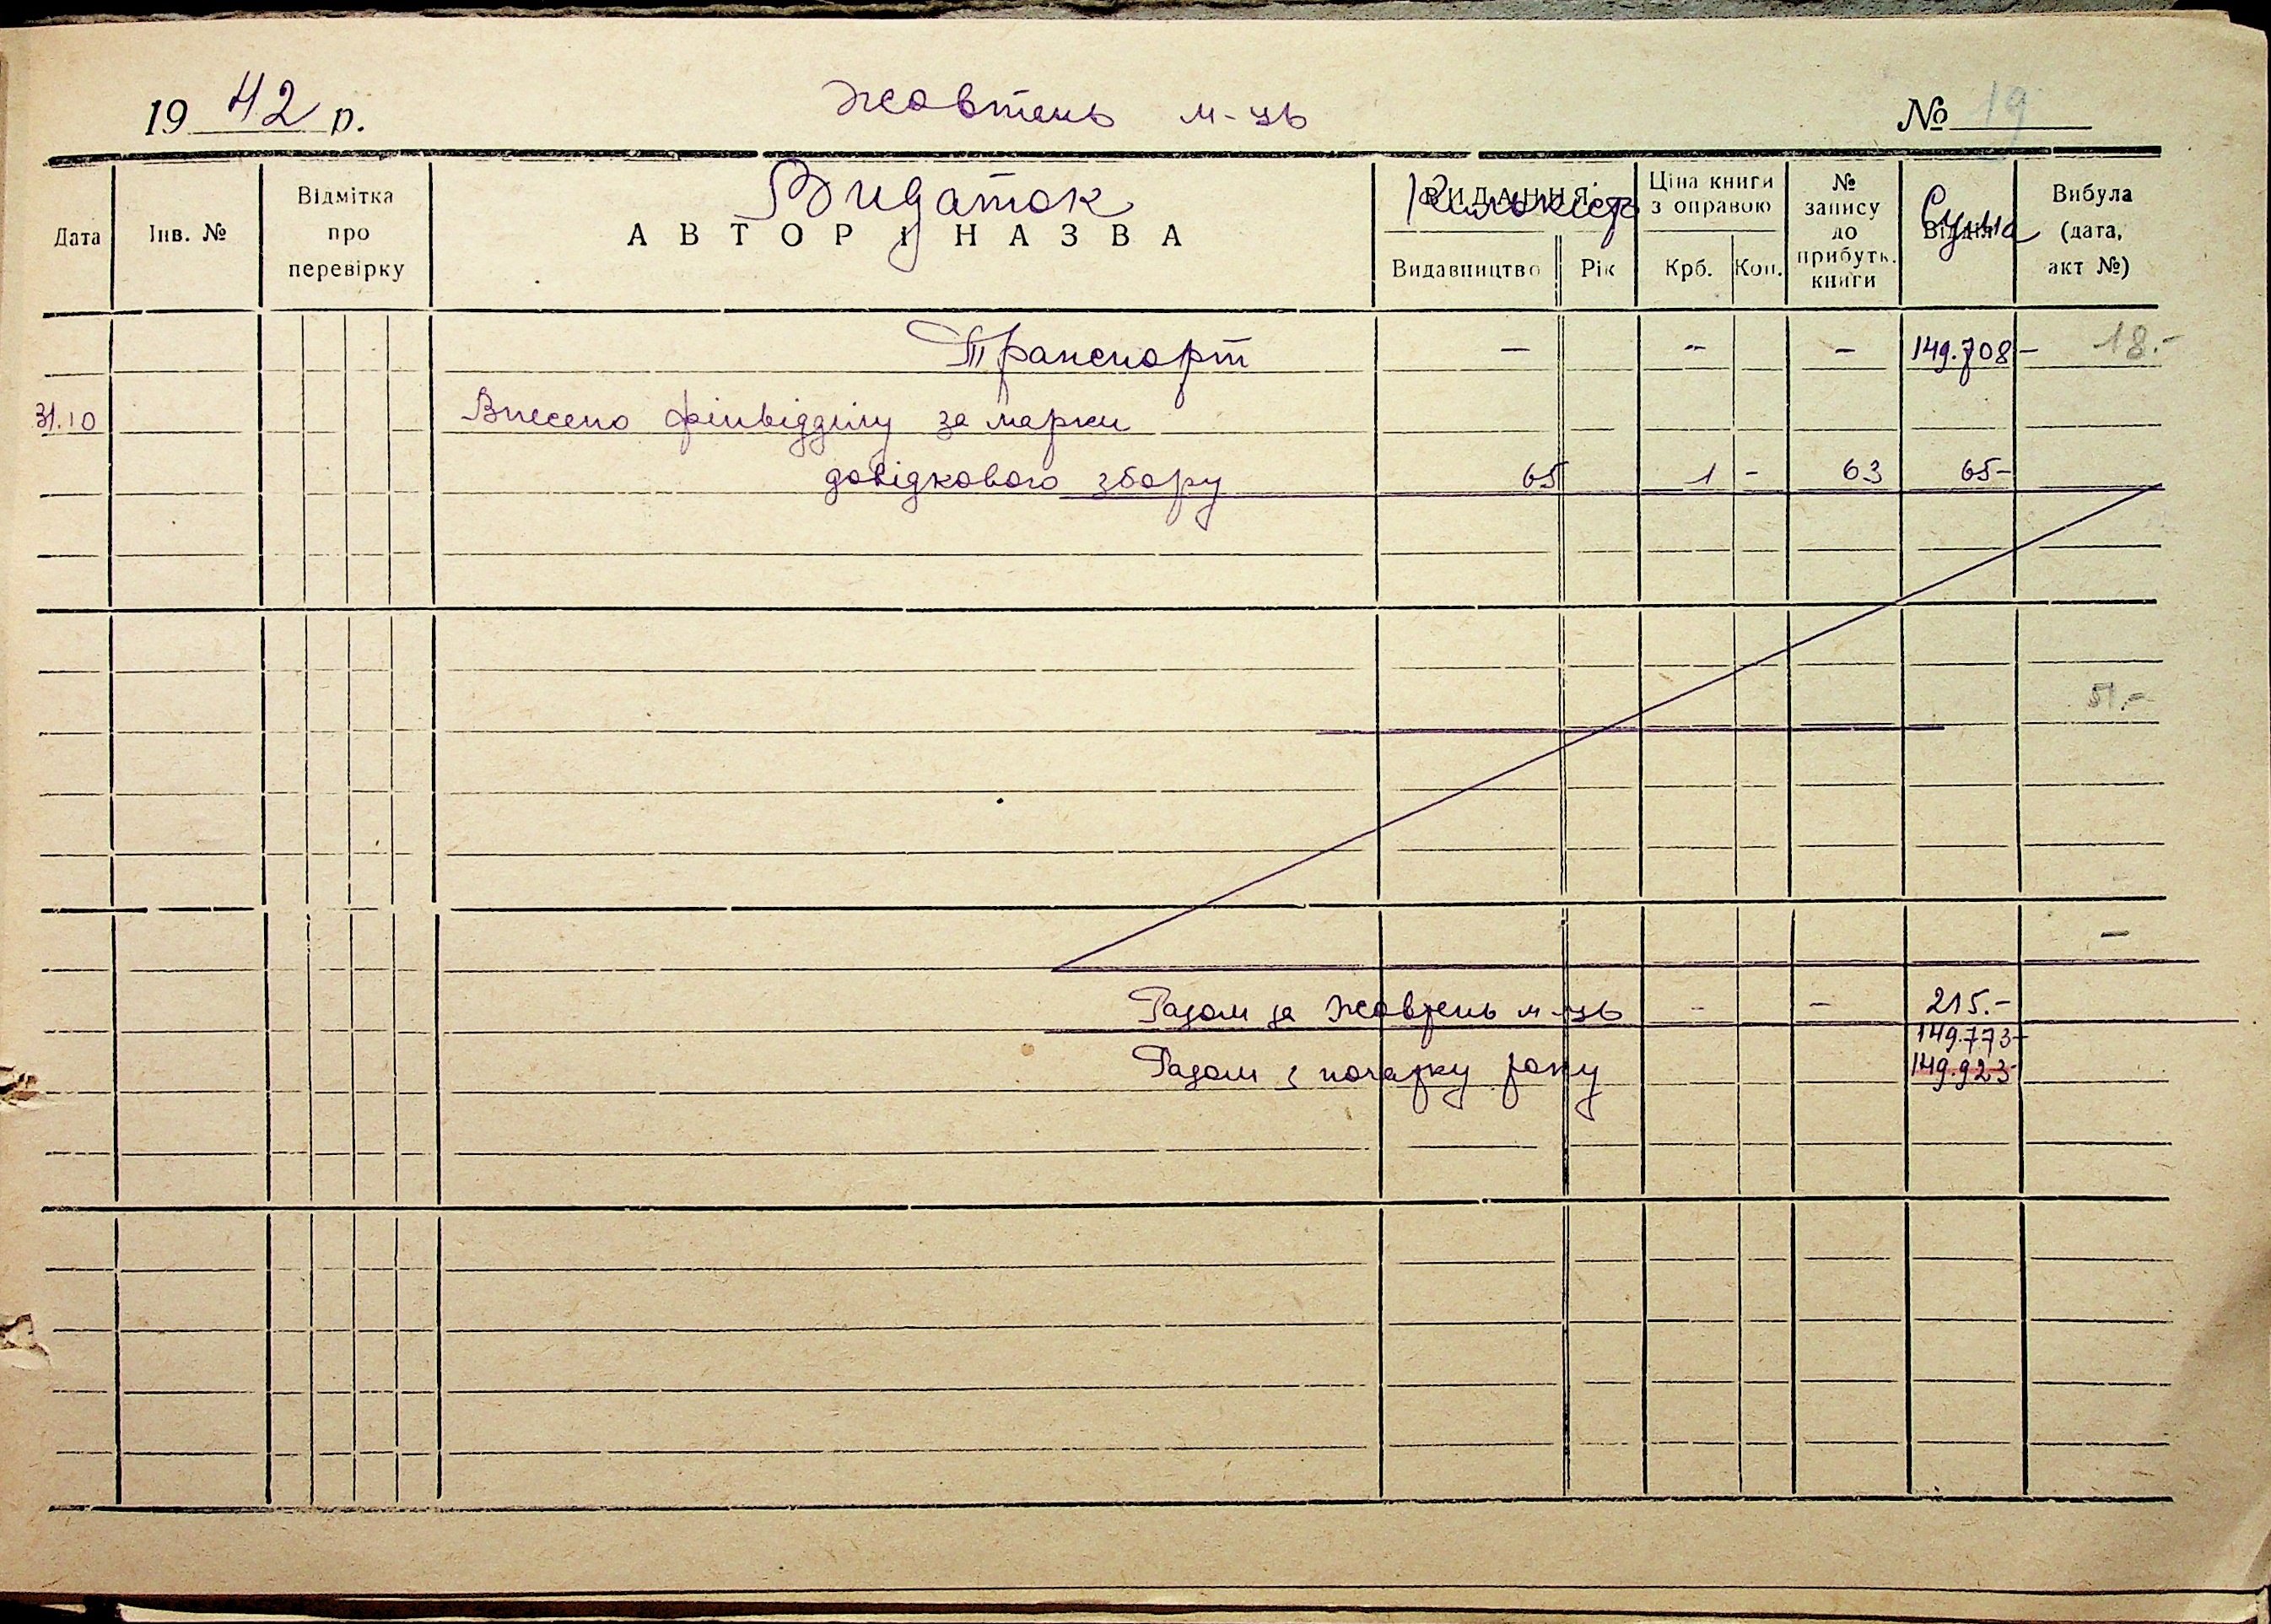 19 42 р. Жовтень м-ць № 19
Дата Інв. № Відмітка про перевірку АВТОР І НАЗВА ВИДАННЯ Видавництво Рік Ціна книги з оправою Крб. Коп. № запису до прибутк. книги Відділ Вибула (дата, акт №)
Видаток Кількість Сума
Транспорт — — — 149.708- 18.-
31.10 Внесено фінвідділу за марки
довідкового збору 65 1 - 63 65-
51.-
—
Разом за Жовтень м-ць - — 215.-
149.773-
Разом з початку року 149.923-